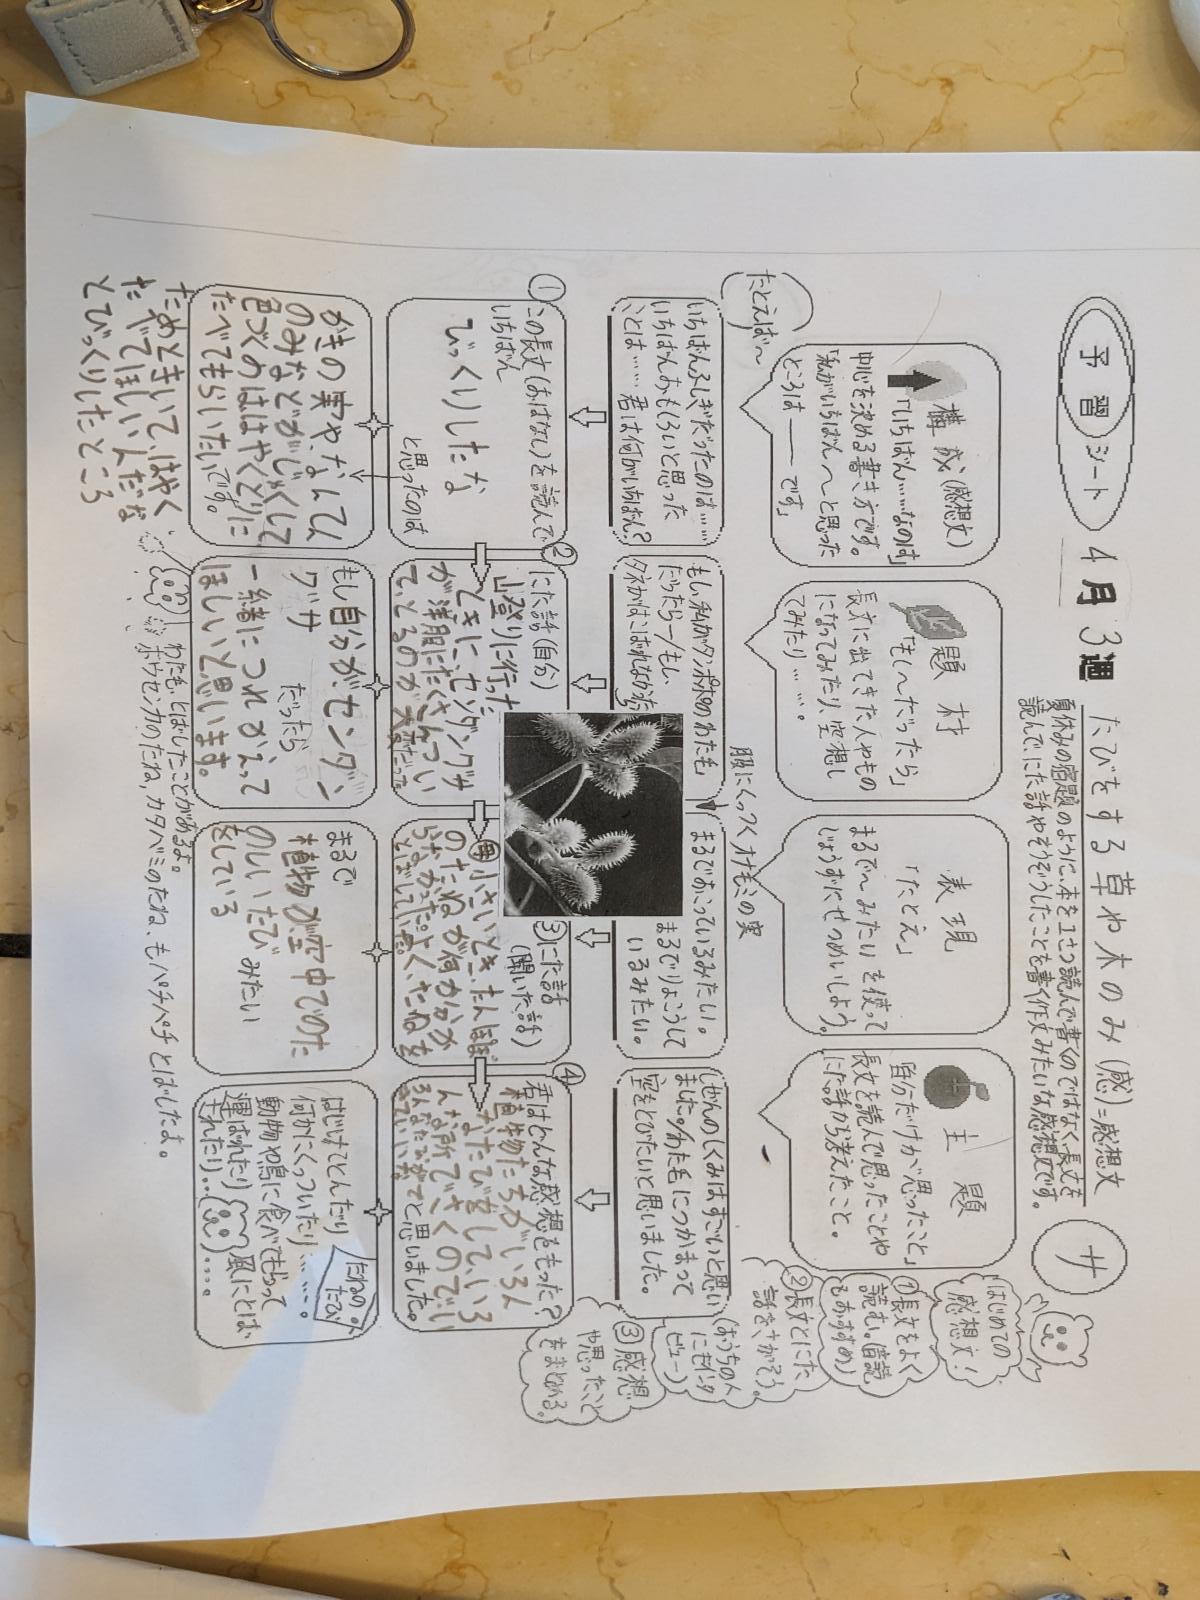 予習シート 4月3週
たびをする草や木のみ(感)=感想文
サ
夏休みの宿題のように、本を1さつ読んで書くのではなく、長文を
読んで、にた話やそうぞうしたことを書く作文みたいな感想文です。
はじめての
感想文!
①長文をよく
読む。(音読
もおすすめ)
②長文とにた
話をさがそう。
(おうちの人
にもインタ
ビュー)
③感想
や思ったこと
をまとめる。
構成(感想文)
「いちばん……なのは」
中心を決める書き方です。
「私がいちばん〜と思った
ところは――です」
題材
「もし〜だったら」
長文に出てきた人やもの
になってみたり、空想し
てみたり……。
表現
「たとえ」
まるで〜みたいを使って
じょうずにせつめいしよう。
主題
「自分だけが思ったこと」
長文を読んで思ったことや
にた話から考えたこと。
たとえば〜
いちばんふしぎだったのは……
いちばんおもしろいと思った
ことは……君は何がいちばん?
もし、私がタンポポのわた毛
だったら―/もし、
タネがはこばれなかったら
服にくっつくオナモミの実
まるでおこっているみたい。
まるでりょこうして
いるみたい。
しぜんのしくみはすごいと思い
ました。/わた毛につかまって
空をとびたいと思いました。
①この長文(おはなし)を読んで
いちばん
びっくりしたな
と思ったのは
②にた話(自分)
山登りに行った
ときに、センダングサ
が洋服にたくさんつい
て、とるのが大変だった
③にた話
(聞いた話)
小さいとき、たんぽぽ
のたねが何かわか
らなかったけど、よく、たねを
とばしていた。
④君はどんな感想をもった?
植物たちがいろん
なたびをして、いろ
んな所でさくのでいい
きていいなと思いました。
かきの実や、なんてん
のみなどがじゅくして
色づくのははやくとりに
たべてもらいたいです。
ためときいて、はやく
たべてほしいんだな
とびっくりしたところ
もし自分がセンダン
グサ
だったら
一緒につれかえって
ほしいと思います。
まるで
植物が空中でのた
のしいたび みたい
をしている
はじけてとんだり
何かにくっついたり……。
動物や鳥に食べてもらって
運ばれたり 風にとば
されたり……。
たねのたび
わた毛、とばしたことがあるよ。
ホウセンカのたね、カタバミのたね、もパチパチとばしたよ。